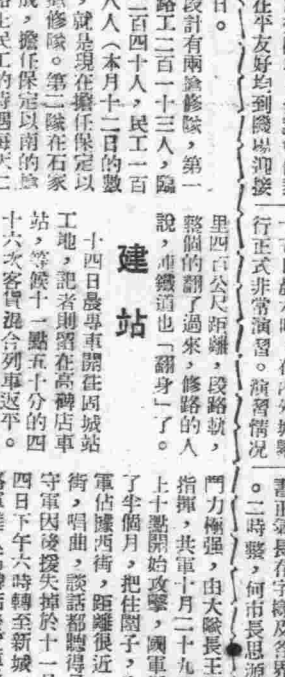 在平友好均到機場迎接
行正式非常演習。演習情况
書正氣長存字樣及各界
。二時整，何市長思源
日。
段計有兩搶修隊，第一
路工二百一十三人，臨
百四十人，民工一百
八人（本月十二日的數
，就是現在擔任保定以
搶修隊。第二隊在石家
成，擔任保定以南的搶
路上民工的待遇每天二
里四百公尺距離，段路軌，
整個的翻了過來，修路的人
說，連鐵道也「翻身」了。
建站
十四日晨專車開往固城站
工地，記者則留在高碑店車
站，等候十一點五十分的四
十六次客貨混合列車返平。
鬥力極强，由大隊長王
指揮，共軍十月二十九
上十點開始攻擊，國軍
了半個月，把住圍子，
軍佔據西街，距離很近
街，唱曲，談話都聽得
守軍因後援失掉於十一
四日下午六時轉至新城